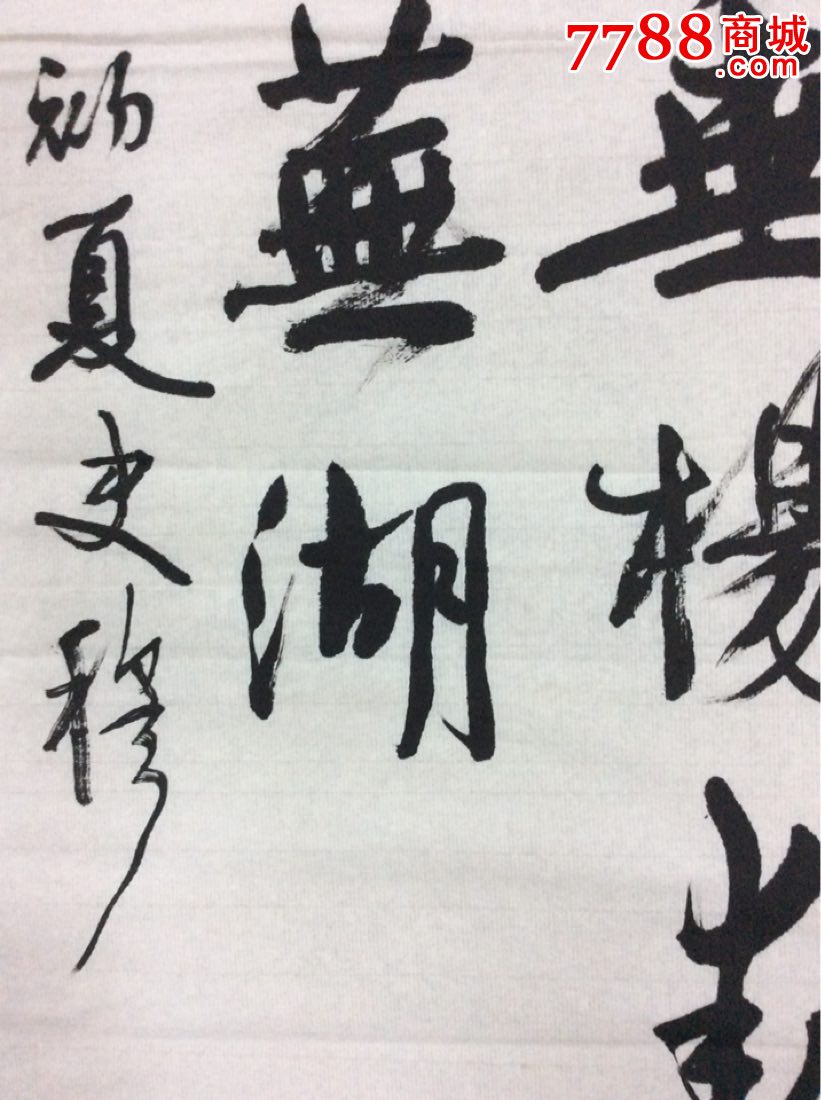 7788商城
.com
無楊
蕪湖
初夏史穆